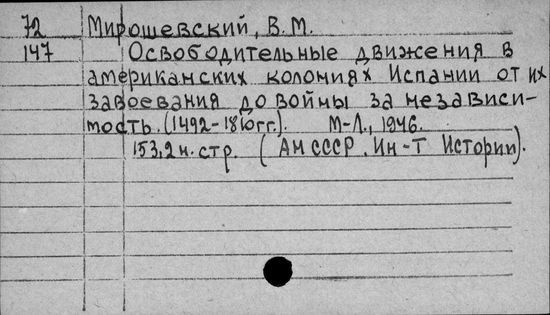 72 Мирошевский, В.М.
147 Освободительные движения в
американских колониях Испании от их
завоевания до войны за независи-
мость. (1492-1810гг.). М-Л., 1946.
153,2н.стр. (АН СССР. Ин-т Истории).